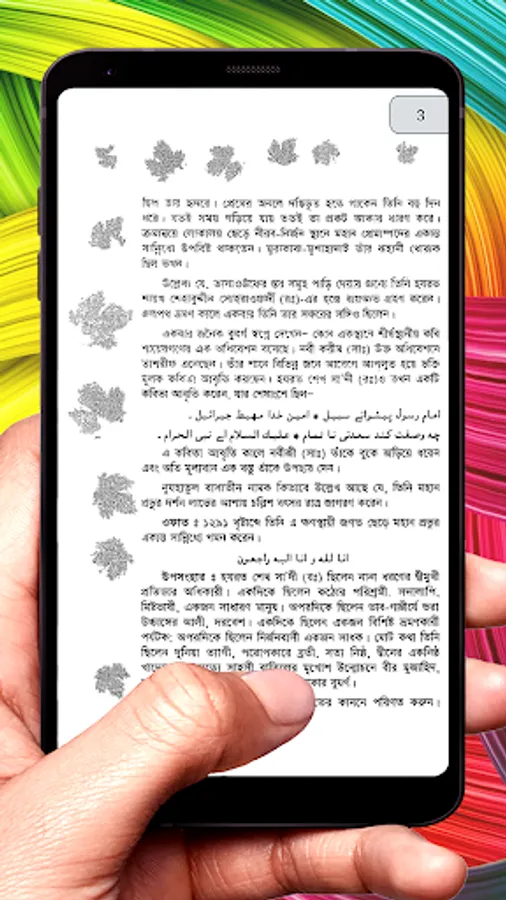 3
ছিল তার হৃদয়ে। প্রেমের অনলে দগ্ধিভূত হতে থাকেন তিনি বহু দিন
ধরে। যতই সময় গড়িয়ে যায় ততই তা প্রকট আকার ধারণ করে।
ক্রমান্বয়ে লোকালয় ছেড়ে নীরব-নির্জন স্থানে মহান প্রেমাস্পদের একান্ত
সান্নিধ্যে উপবিষ্ট থাকতেন। মুরাকাবা-মুশাহাদাই তাঁর রূহানী খোরাক
ছিল তখন।
উল্লেখ্য যে, তাসাওউফের স্তর সমূহ পাড়ি দেয়ার জন্যে তিনি হযরত
শায়খ শেহাবুদ্দীন সোহরাওয়ার্দী (রঃ)-এর হাতে বায়আত গ্রহণ করেন।
জলপথ ভ্রমণ কালে একবার তিনি তার সফরের সঙ্গিও ছিলেন।
একবার জনৈক বুযর্গ স্বপ্নে দেখেন– কোন একস্থানে শীর্ষস্থানীয় কবি
শায়েরগণের এক অধিবেশন বসেছে। নবী করীম (সাঃ) উক্ত অধিবেশনে
তাশরীফ এনেছেন। তাঁর শানে বিভিন্ন জনে আবেগে আপ্লুত হয়ে ভক্তি
মূলক কবিতা আবৃত্তি করছেন। হযরত শেখ সা'দী (রঃ)ও তখন একটি
কবিতা আবৃতি করেন, যার শেষাংশে ছিল–
امام رسول پیشوائے سبیل * امین خدا مهبط جبرائیل ۔
چه وصفت کند سعدئی نا تمام * علیك السلام اے نبی الحرام ۔
এ কবিতা আবৃতি কালে নবীজী (সাঃ) তাঁকে বুকে জড়িয়ে ধরেন
এবং অতি মূল্যবান এক বস্তু তাঁকে উপহার দেন।
নুযহাতুল বাসাতীন নামক কিতাবে উল্লেখ আছে যে, তিনি মহান
প্রভুর দর্শন লাভের আশায় চল্লিশ বৎসর রাত্র জাগরণ করেন।
ওফাত ঃ ১২৯১ খৃষ্টাব্দে তিনি এ ক্ষণস্থায়ী জগত ছেড়ে মহান প্রভুর
একান্ত সান্নিধ্যে গমন করেন।
انا لله و انا اليه راجعون
উপসংহার ঃ হযরত শেখ সা'দী (রঃ) ছিলেন নানা ধরণের দ্বীমুখী
প্রতিভার অধিকারী। একদিকে ছিলেন কঠোর পরিশ্রমী, সদালাপি,
মিষ্টভাষী, একজন সাধারণ মানুষ। অপরদিকে ছিলেন ভাব-গাম্ভীর্যে ভরা
উচ্চাসের আলী, দরবেশ। একদিকে ছিলেন একজন বিশিষ্ট ভ্রমণকারী
পর্যটক; অপরদিকে ছিলেন নির্জনবাসী একজন সাধক। মোট কথা তিনি
ছিলেন দুনিয়া ত্যাগী, পরোপকারে ব্রতী, সত্য নিষ্ঠ, দ্বীনের একনিষ্ঠ
মুখোশ উন্মোচনে বীর মুজাহিদ,
বুযর্গ।
কাননে পরিণত করুন।